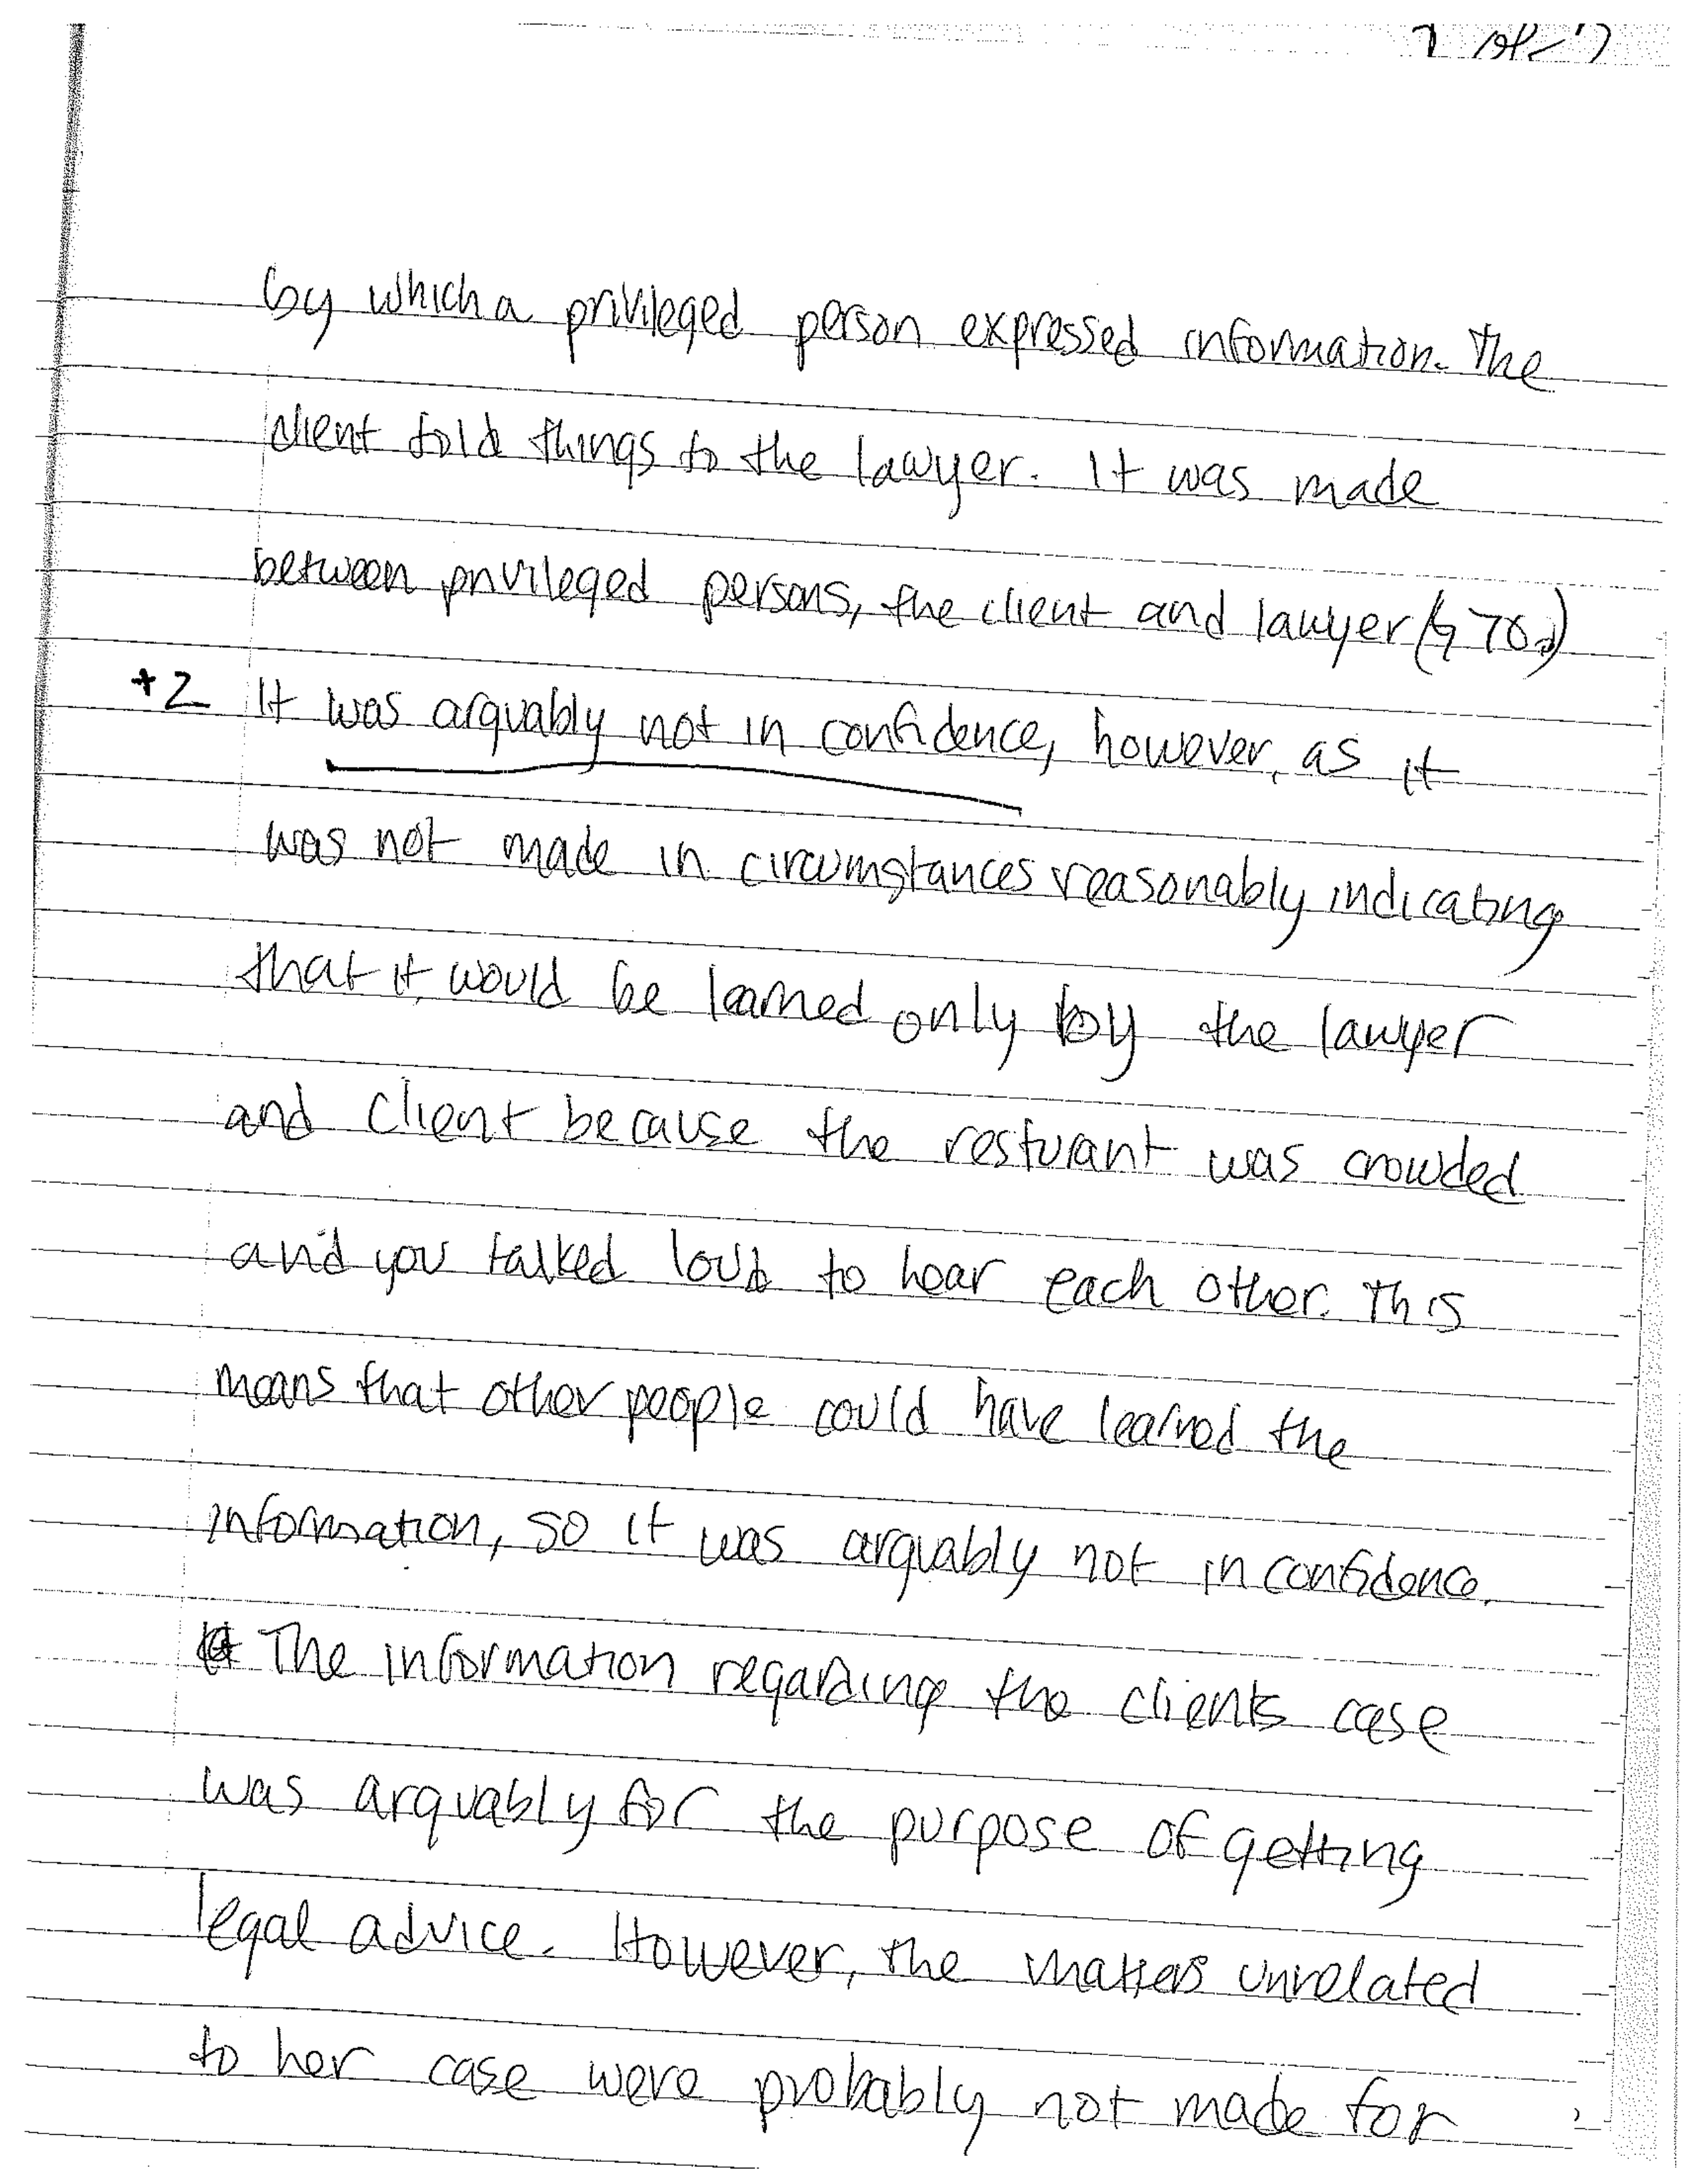 by which a privileged person expressed information. The
client told things to the lawyer. It was made
between privileged persons, the client and lawyer (§ 70.)
+2 It was arguably not in confidence, however, as it
was not made in circumstances reasonably indicating
that it would be learned only by the lawyer
and client because the resturant was crowded
and you talked loud to hear each other. This
means that other people could have learned the
information, so it was arguably not in confidence.
The information regarding the clients case
was arguably for the purpose of getting
legal advice. However, the matters unrelated
to her case were probably not made for